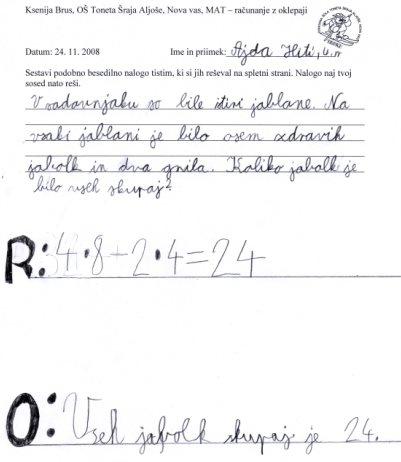 Ksenija Brus, OŠ Toneta Šraja Aljoše, Nova vas, MAT – računanje z oklepaji
Datum: 24. 11. 2008 Ime in priimek: Ajda Hiti, 4.r
Sestavi podobno besedilno nalogo tistim, ki si jih reševal na spletni strani. Nalogo naj tvoj
sosed nato reši.
V sadovnjaku so bile štiri jablane. Na
vsaki jablani je bilo osem zdravih
jabolk in dva gnila. Koliko jabolk je
bilo vseh skupaj?
R: 4·8-2·4=24
O: Vseh jabolk skupaj je 24.